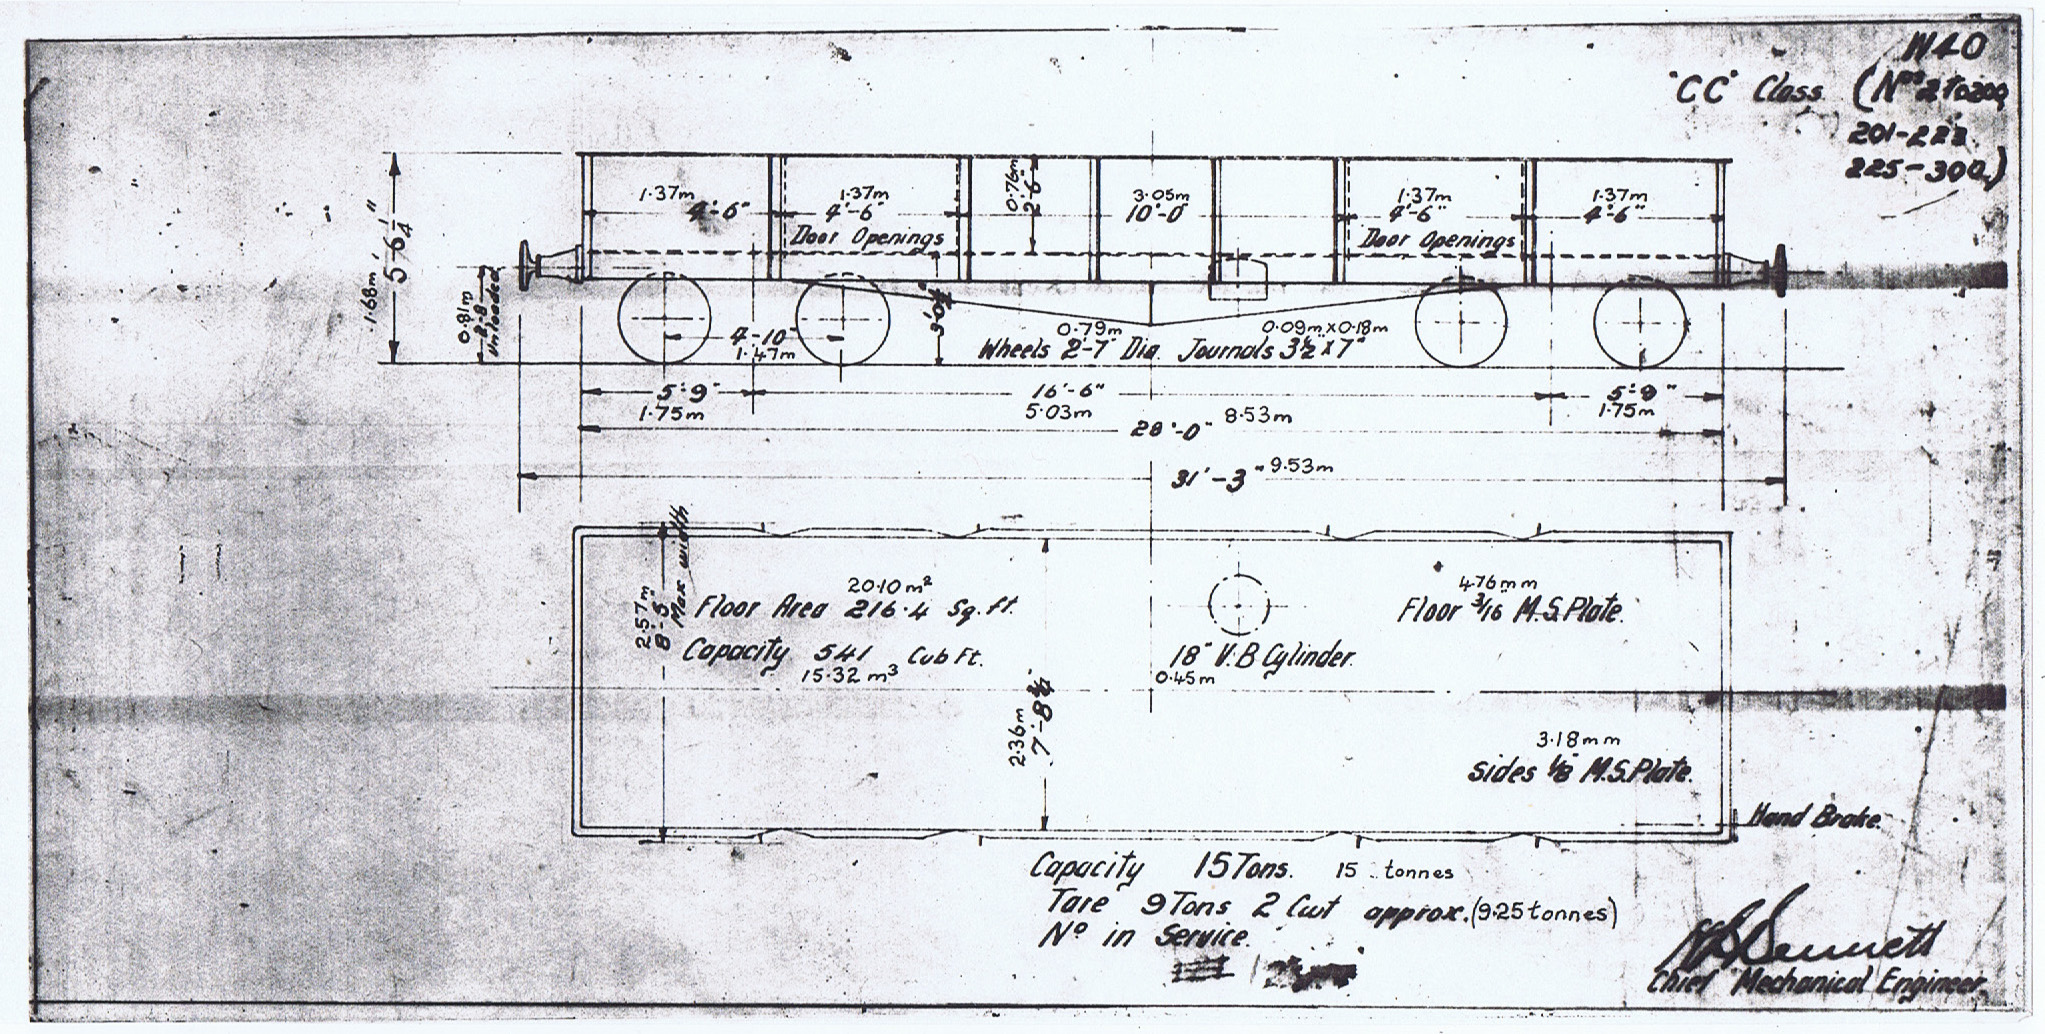 W40
"CC" Class. (Nos 2 to 200,
201-223.
225-300.)
1.37m 1.37m 0.76m 3.05m 1.37m 1.37m
4'-6" 4'-6" 2'-6" 10'-0" 4'-6" 4'-6"
Door Openings Door Openings
1.68m 5'6 1/4"
0.81m 2'-8" Unloaded
3'-0 1/4"
4-10" 0.79m 0.09m x 0.18m
1.47m Wheels 2'-7" Dia. Journals 3½" x 7"
5'-9" 16'-6" 5'-9"
1.75m 5.03m 1.75m
28'-0" 8.53m
31'-3" 9.53m
2.57m 8'-5" Max width
20.10 m² 4.76mm
Floor Area 216.4 Sq. ft. Floor 3/16" M.S.Plate.
Capacity 541 Cub Ft. 18" V.B Cylinder.
15.32 m³ 0.45m
2.36m 7'-8¾"
3.18mm
Sides 1/8" M.S.Plate.
Hand Brake.
Capacity 15 Tons. 15 tonnes
Tare 9 Tons 2 Cwt approx. (9.25 tonnes)
Nº in Service.
Chief Mechanical Engineer.